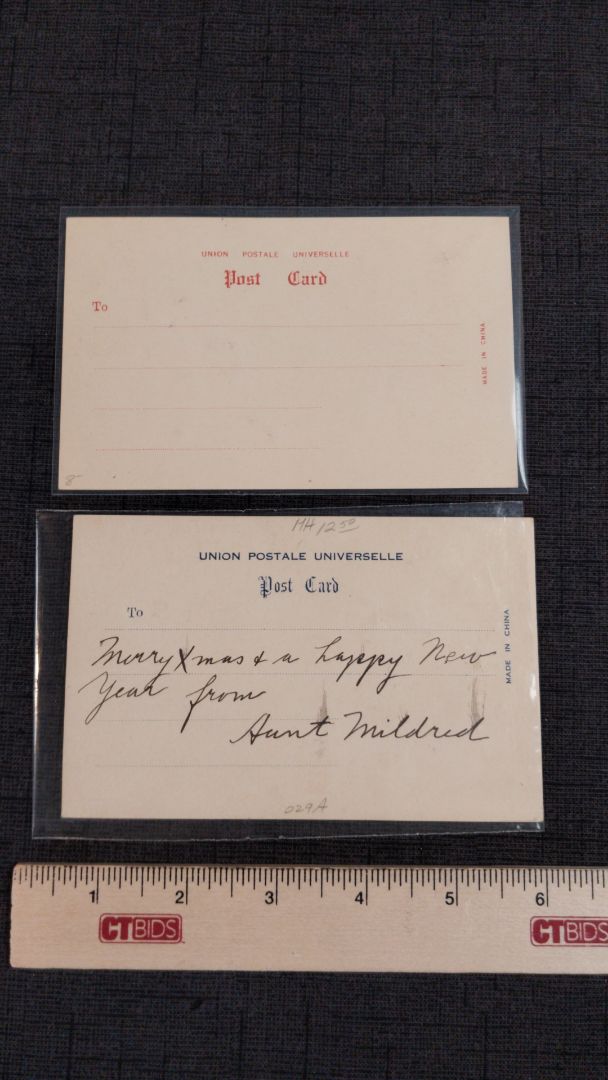 UNION POSTALE UNIVERSELLE
Post Card
To
MADE IN CHINA
8
MH 12.50
UNION POSTALE UNIVERSELLE
Post Card
To
MADE IN CHINA
Merry Xmas & a happy New
Year from
Aunt Mildred
029A
1 2 3 4 5 6
CTBIDS CTBIDS